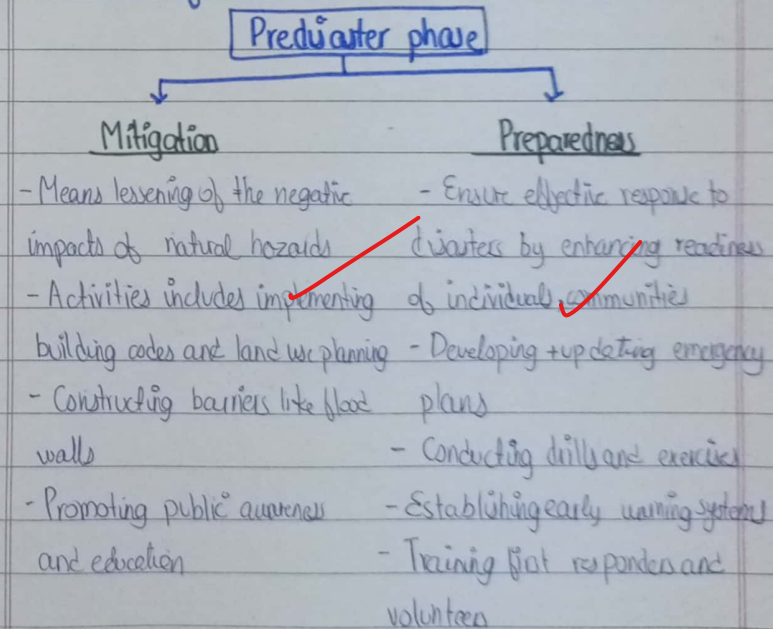 Predisaster phase
Mitigation
- Means lessening of the negative
impacts of natural hazards
- Activities includes implementing
building codes and land use planning
- Constructing barriers like flood
walls
- Promoting public awareness
and education
Preparedness
- Ensure effective response to
disasters by enhancing readiness
of individuals, communities
- Developing + updating emergency
plans
- Conducting drills and exercises
- Establishing early warning systems
- Training first responders and
volunteers